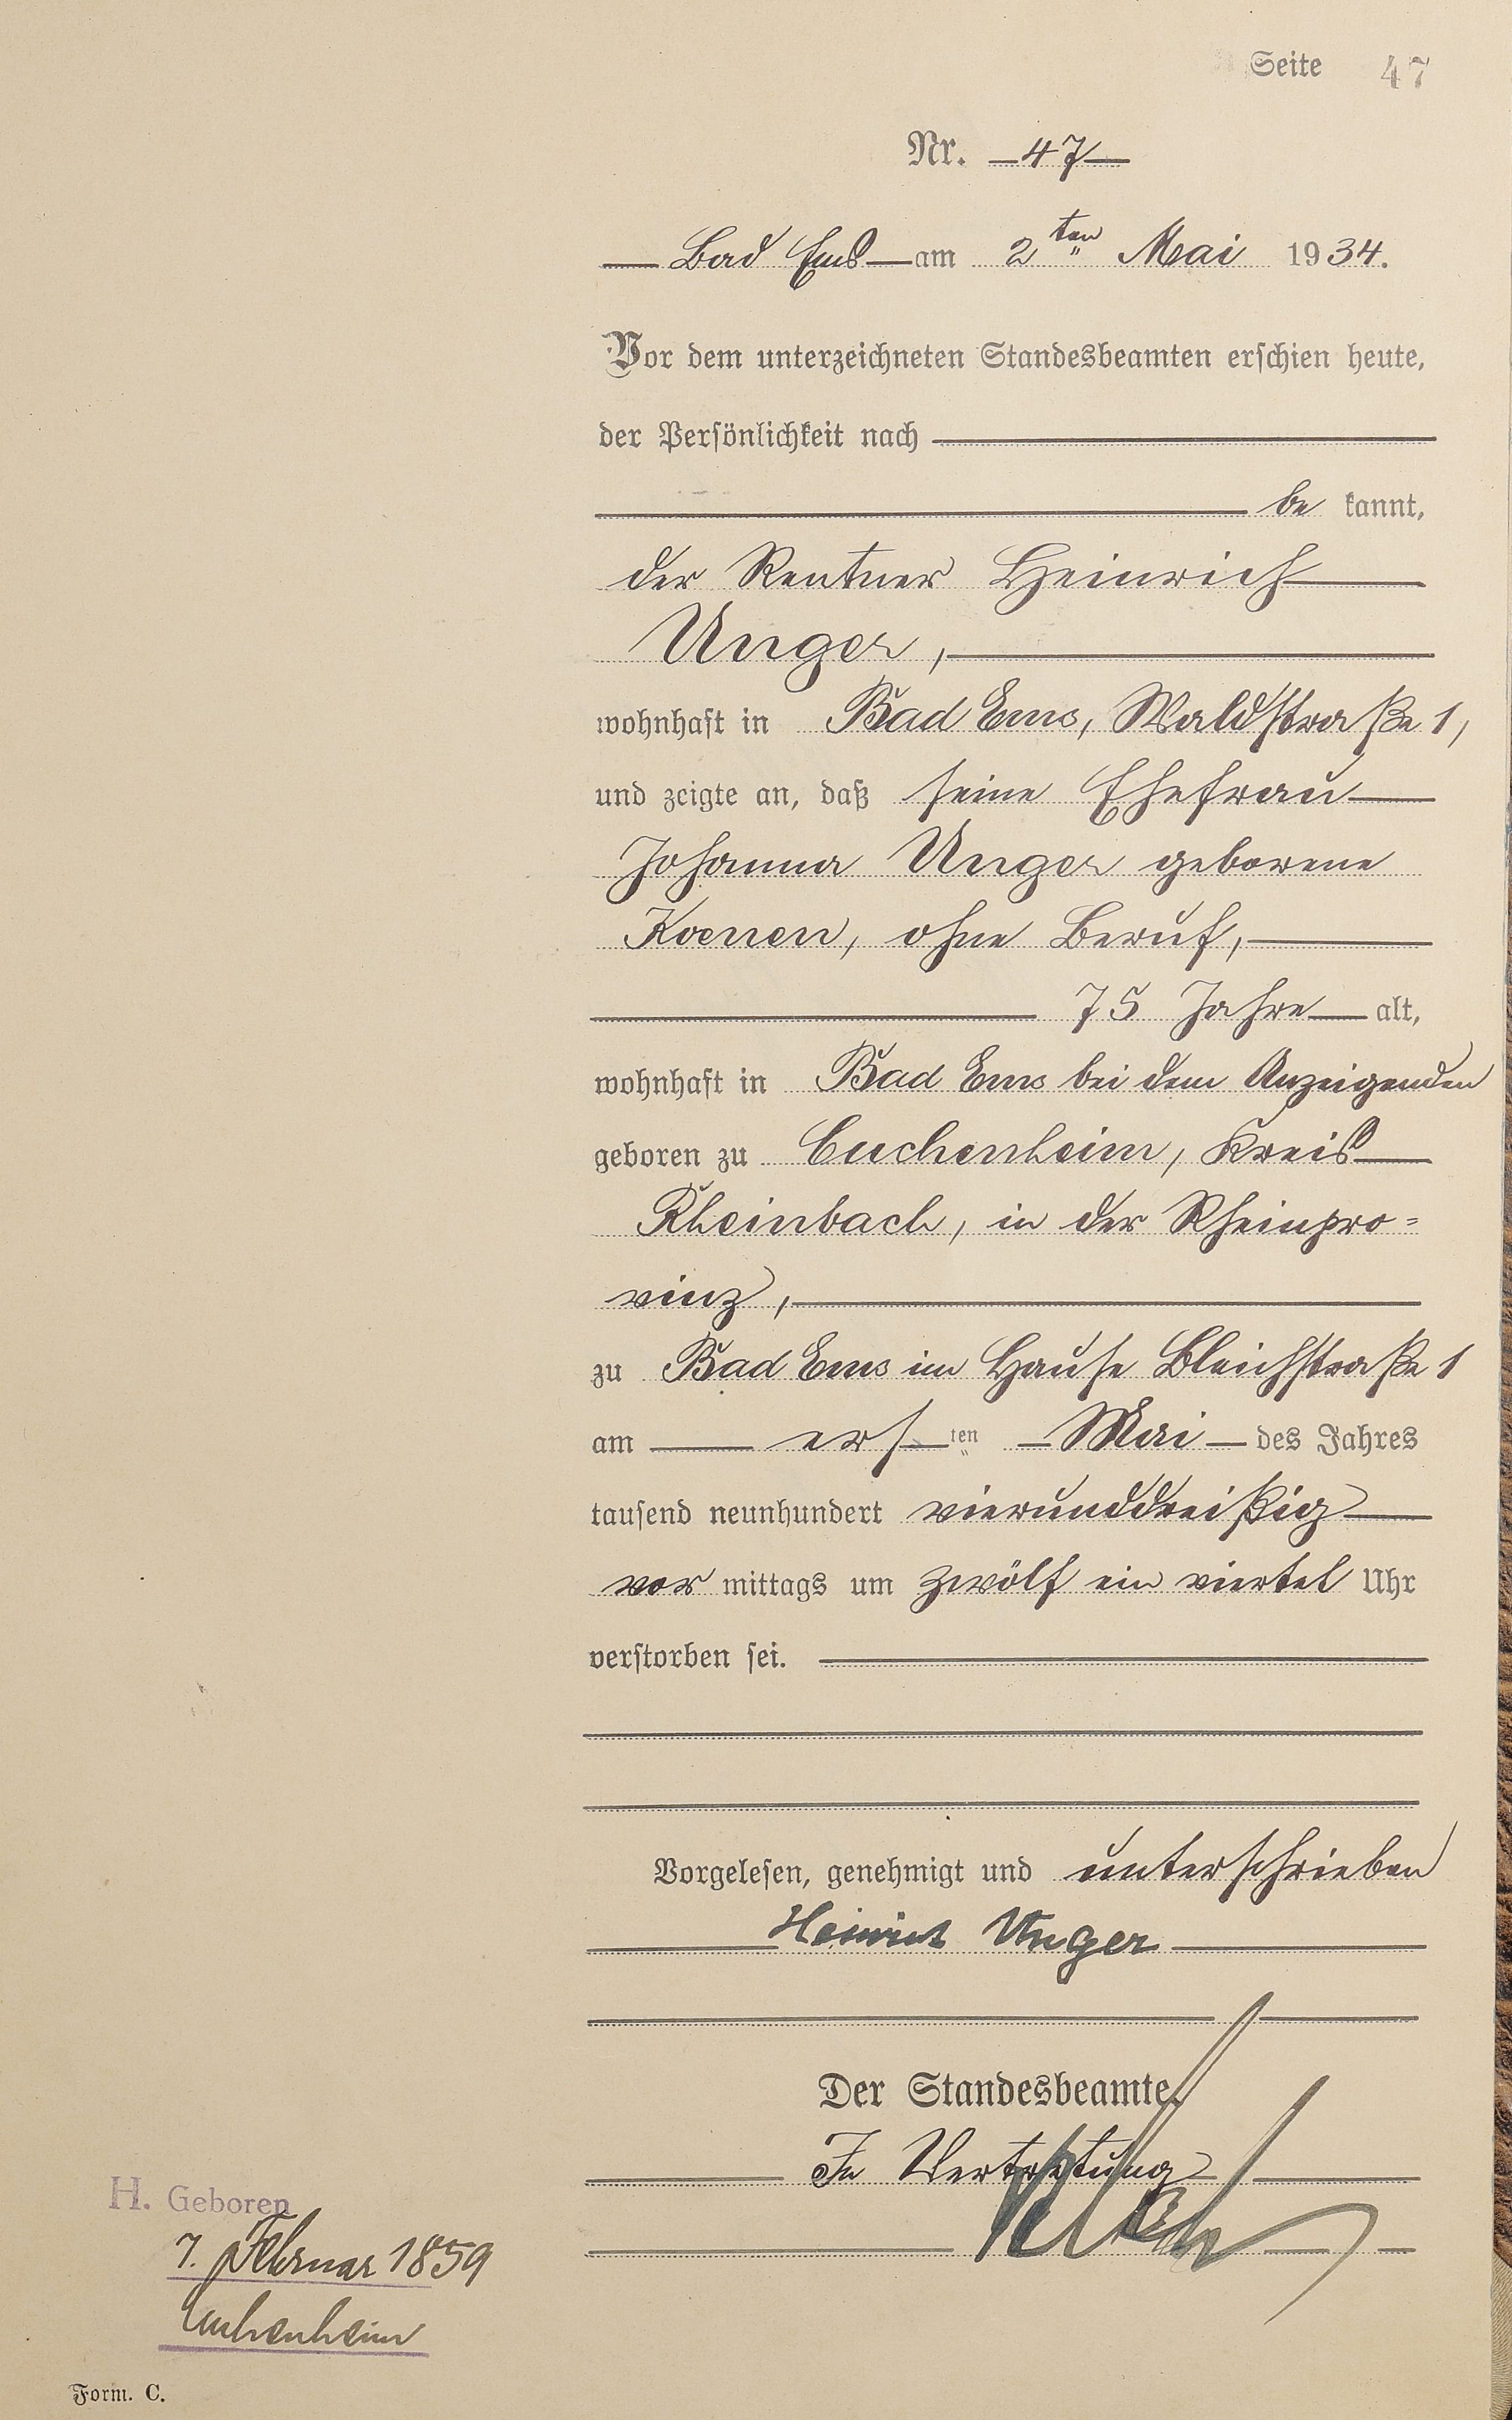 Seite 47
Nr. 47
Bad Ems am 2ten Mai 1934.
Vor dem unterzeichneten Standesbeamten erschien heute,
der Persönlichkeit nach
be kannt,
der Rentner Heinrich
Unger,
wohnhaft in Bad Ems, Waldstraße 1,
und zeigte an, daß seine Ehefrau
Johanna Unger geborene
Koenen, ohne Beruf,
75 Jahre alt,
wohnhaft in Bad Ems bei dem Anzeigenden
geboren zu Cuchenheim, Kreis
Rheinbach, in der Rheinpro=
vinz,
zu Bad Ems im Hause Bleichstraße 1
am ersten Mai des Jahres
tausend neunhundert vierunddreißig
vor mittags um zwölf ein viertel Uhr
verstorben sei.
Vorgelesen, genehmigt und unterschrieben
Heinrich Unger
Der Standesbeamte.
In Vertretung
H. Geboren
7. Februar 1859
Cuchenheim
Form. C.